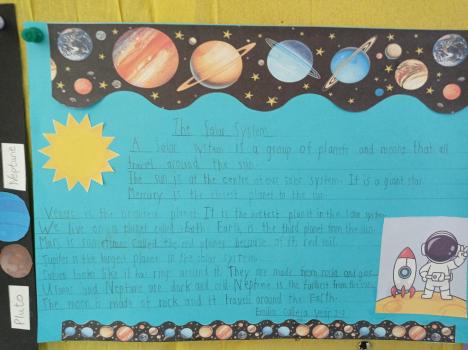 Neptune
Pluto
The Solar System
A Solar System is a group of planets and moons that all
travel around the sun.
The sun is at the centre of our solar system. It is a giant star.
Mercury is the closest planet to the sun.
Venus is the brightest planet. It is the hottest planet in the solar system.
We live on a planet called Earth. Earth is the third planet from the sun.
Mars is sometimes called the red planet because of it red soil.
Jupiter is the largest planet in the solar system.
Saturn looks like it has rings around it. They are made from rocks and gas.
Uranus and Neptune are dark and cold. Neptune is the furthest from the sun.
The moon is made of rock and it travels around the Earth.
Emilia Year